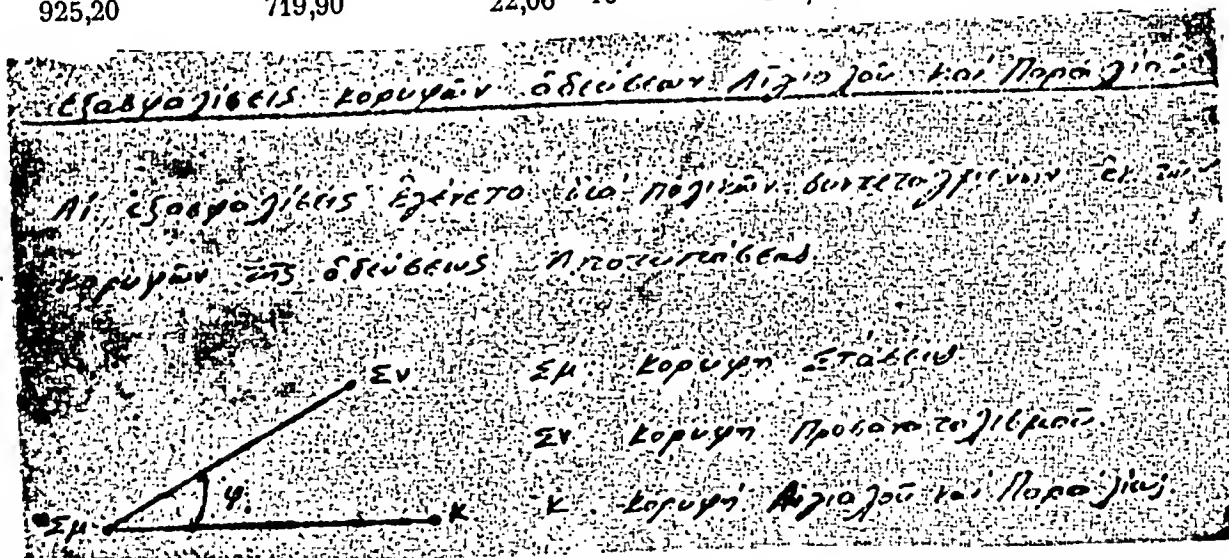 925,20 719,90 22,06
Ἐξασφαλίσεις κορυφῶν ὁδεύσεων Αἰγιαλοῦ καὶ Παραλίας
Αἱ ἐξασφαλίσεις ἐγένετο διά πολικῶν συντεταγμένων ἐκ τῶν
κορυφῶν τῆς ὁδεύσεως Ἀποτυπώσεως
Σν Σμ. Κορυφή Στάσεως
Σν. Κορυφή Προσανατολισμοῦ.
φ. Κ. Κορυφή Αἰγιαλοῦ καὶ Παραλίας
Σμ Κ